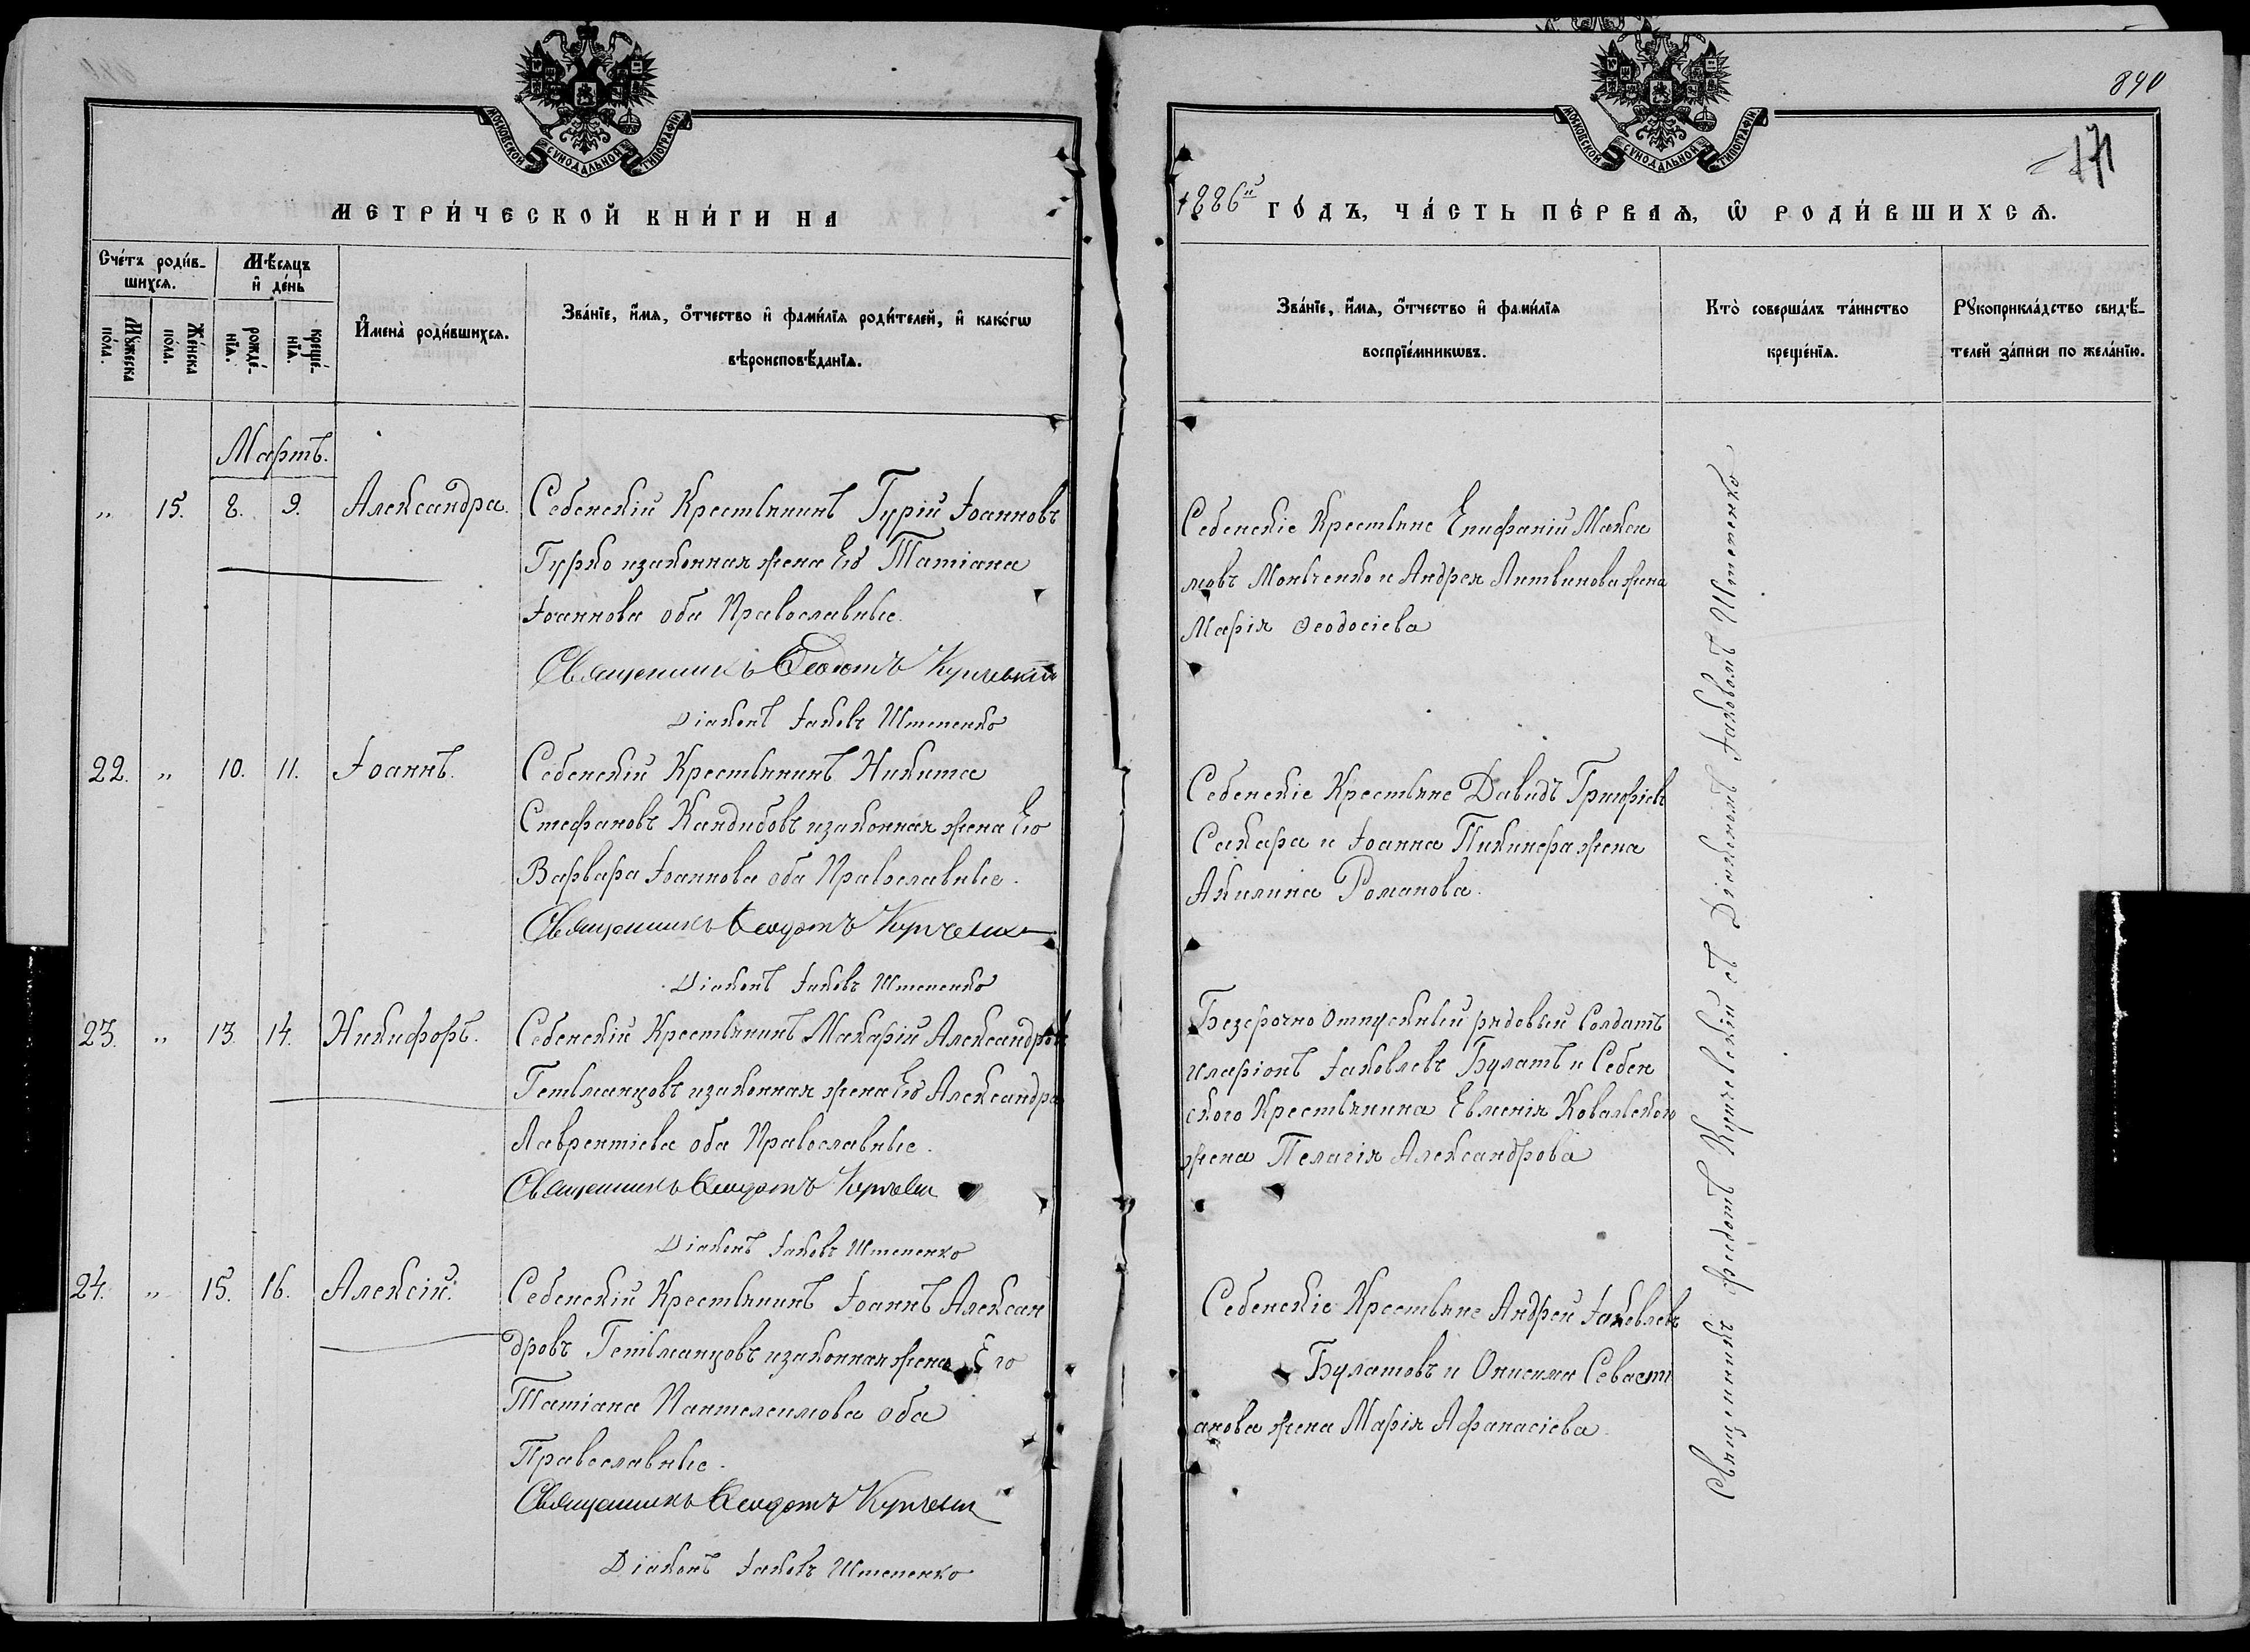 МОСКОВСКОЙ СѴНОДАЛЬНОЙ ТИПОГРАФІИ
МЕТРИ́ЧЕСКОЙ КНИ́ГИ НА
Сче́тъ роди́в-
шихсѧ.
Мѣ́сяцъ
и҆ де́нь
Мꙋжеска
по́ла.
Же́нска
по́ла.
рожде́-
нїѧ.
креще́-
нїѧ.
И҆мена̀ роди́вшихсѧ.
Зва́нїе, и҆́мѧ, ѻ҆́тчество и҆ фами́лїѧ роди́телей, и҆ како́гѡ
вѣроисповѣ́данїѧ.
Мартъ.
" 15. 8. 9. Александра.
Себенскій Крестьянинъ Гурій Іоанновъ
Гурко и законная жена Его Татіана
Іоаннова оба Православные.
Священникъ Ѳеодотъ Купчевскій
Діаконъ Іаковъ Штепенко
22. " 10. 11. Іоаннъ.
Себенскій Крестьянинъ Никита
Стефановъ Кандибовъ и законная жена Его
Варвара Іоаннова оба Православные.
Священникъ Ѳеодотъ
Діаконъ Іаковъ Штепенко
23. " 13. 14. Никифоръ.
Себенскій Крестьянинъ Макарій Александровъ
Гетьманцовъ и законная жена Его Александра
Лаврентіева оба Православные.
Священникъ Ѳеодотъ
Діаконъ Іаковъ Штепенко
24. " 15. 16. Алексій.
Себенскій Крестьянинъ Іоаннъ Алексан
дровъ Гетьманцовъ и законная жена Его
Татіана Пантелеимова оба
Православные.
Священникъ Ѳеодотъ
Діаконъ Іаковъ Штепенко
890
171
МОСКОВСКОЙ СѴНОДАЛЬНОЙ ТИПОГРАФІИ
1886й ГО́ДЪ, ЧА́СТЬ ПЕ́РВАѦ, Ѡ҆ РОДИ́ВШИХСѦ.
Зва́нїе, и҆́мѧ, ѻ҆́тчество и҆ фами́лїѧ
воспрїе́мникѡвъ.
Кто̀ соверша́лъ та́инство
креще́нїѧ.
Рꙋкоприкла́дство свидѣ́-
телей за́писи по жела́нїю.
Себенскіе Крестьяне Епифаній Макси
мовъ и Андрея Литвинова жена
Марія Ѳеодосіева
Себенскіе Крестьяне Давидъ Григоріевъ
Сакара и Іоанна жена
Акилина Романова.
Безсрочно Отпускный рядовый Солдатъ
Иларіонъ Іаковлевъ Булатъ и Себен
ского Крестьянина Евменія Ковальского
жена Пелагія Александрова
Себенскіе Крестьяне Андрей Іаковлевъ
Булатовъ и Онисима Севасти
анова жена Марія Афанасіева
Священникъ Ѳеодотъ Купчевскій съ Діакономъ Іаковомъ Штепенко